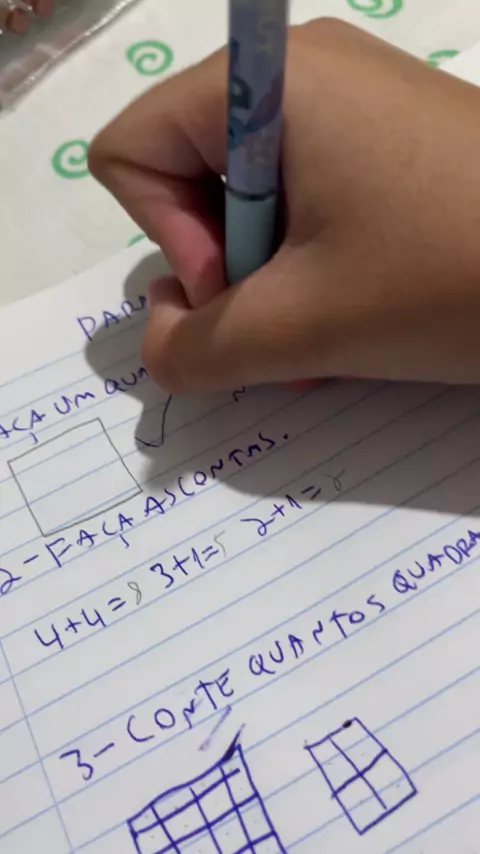 PAR
AÇA UM QUA
2-FAÇA AS CONTAS.
4+4=8 3+1=5 2+1=
3-CONTE QUANTOS QUADRA